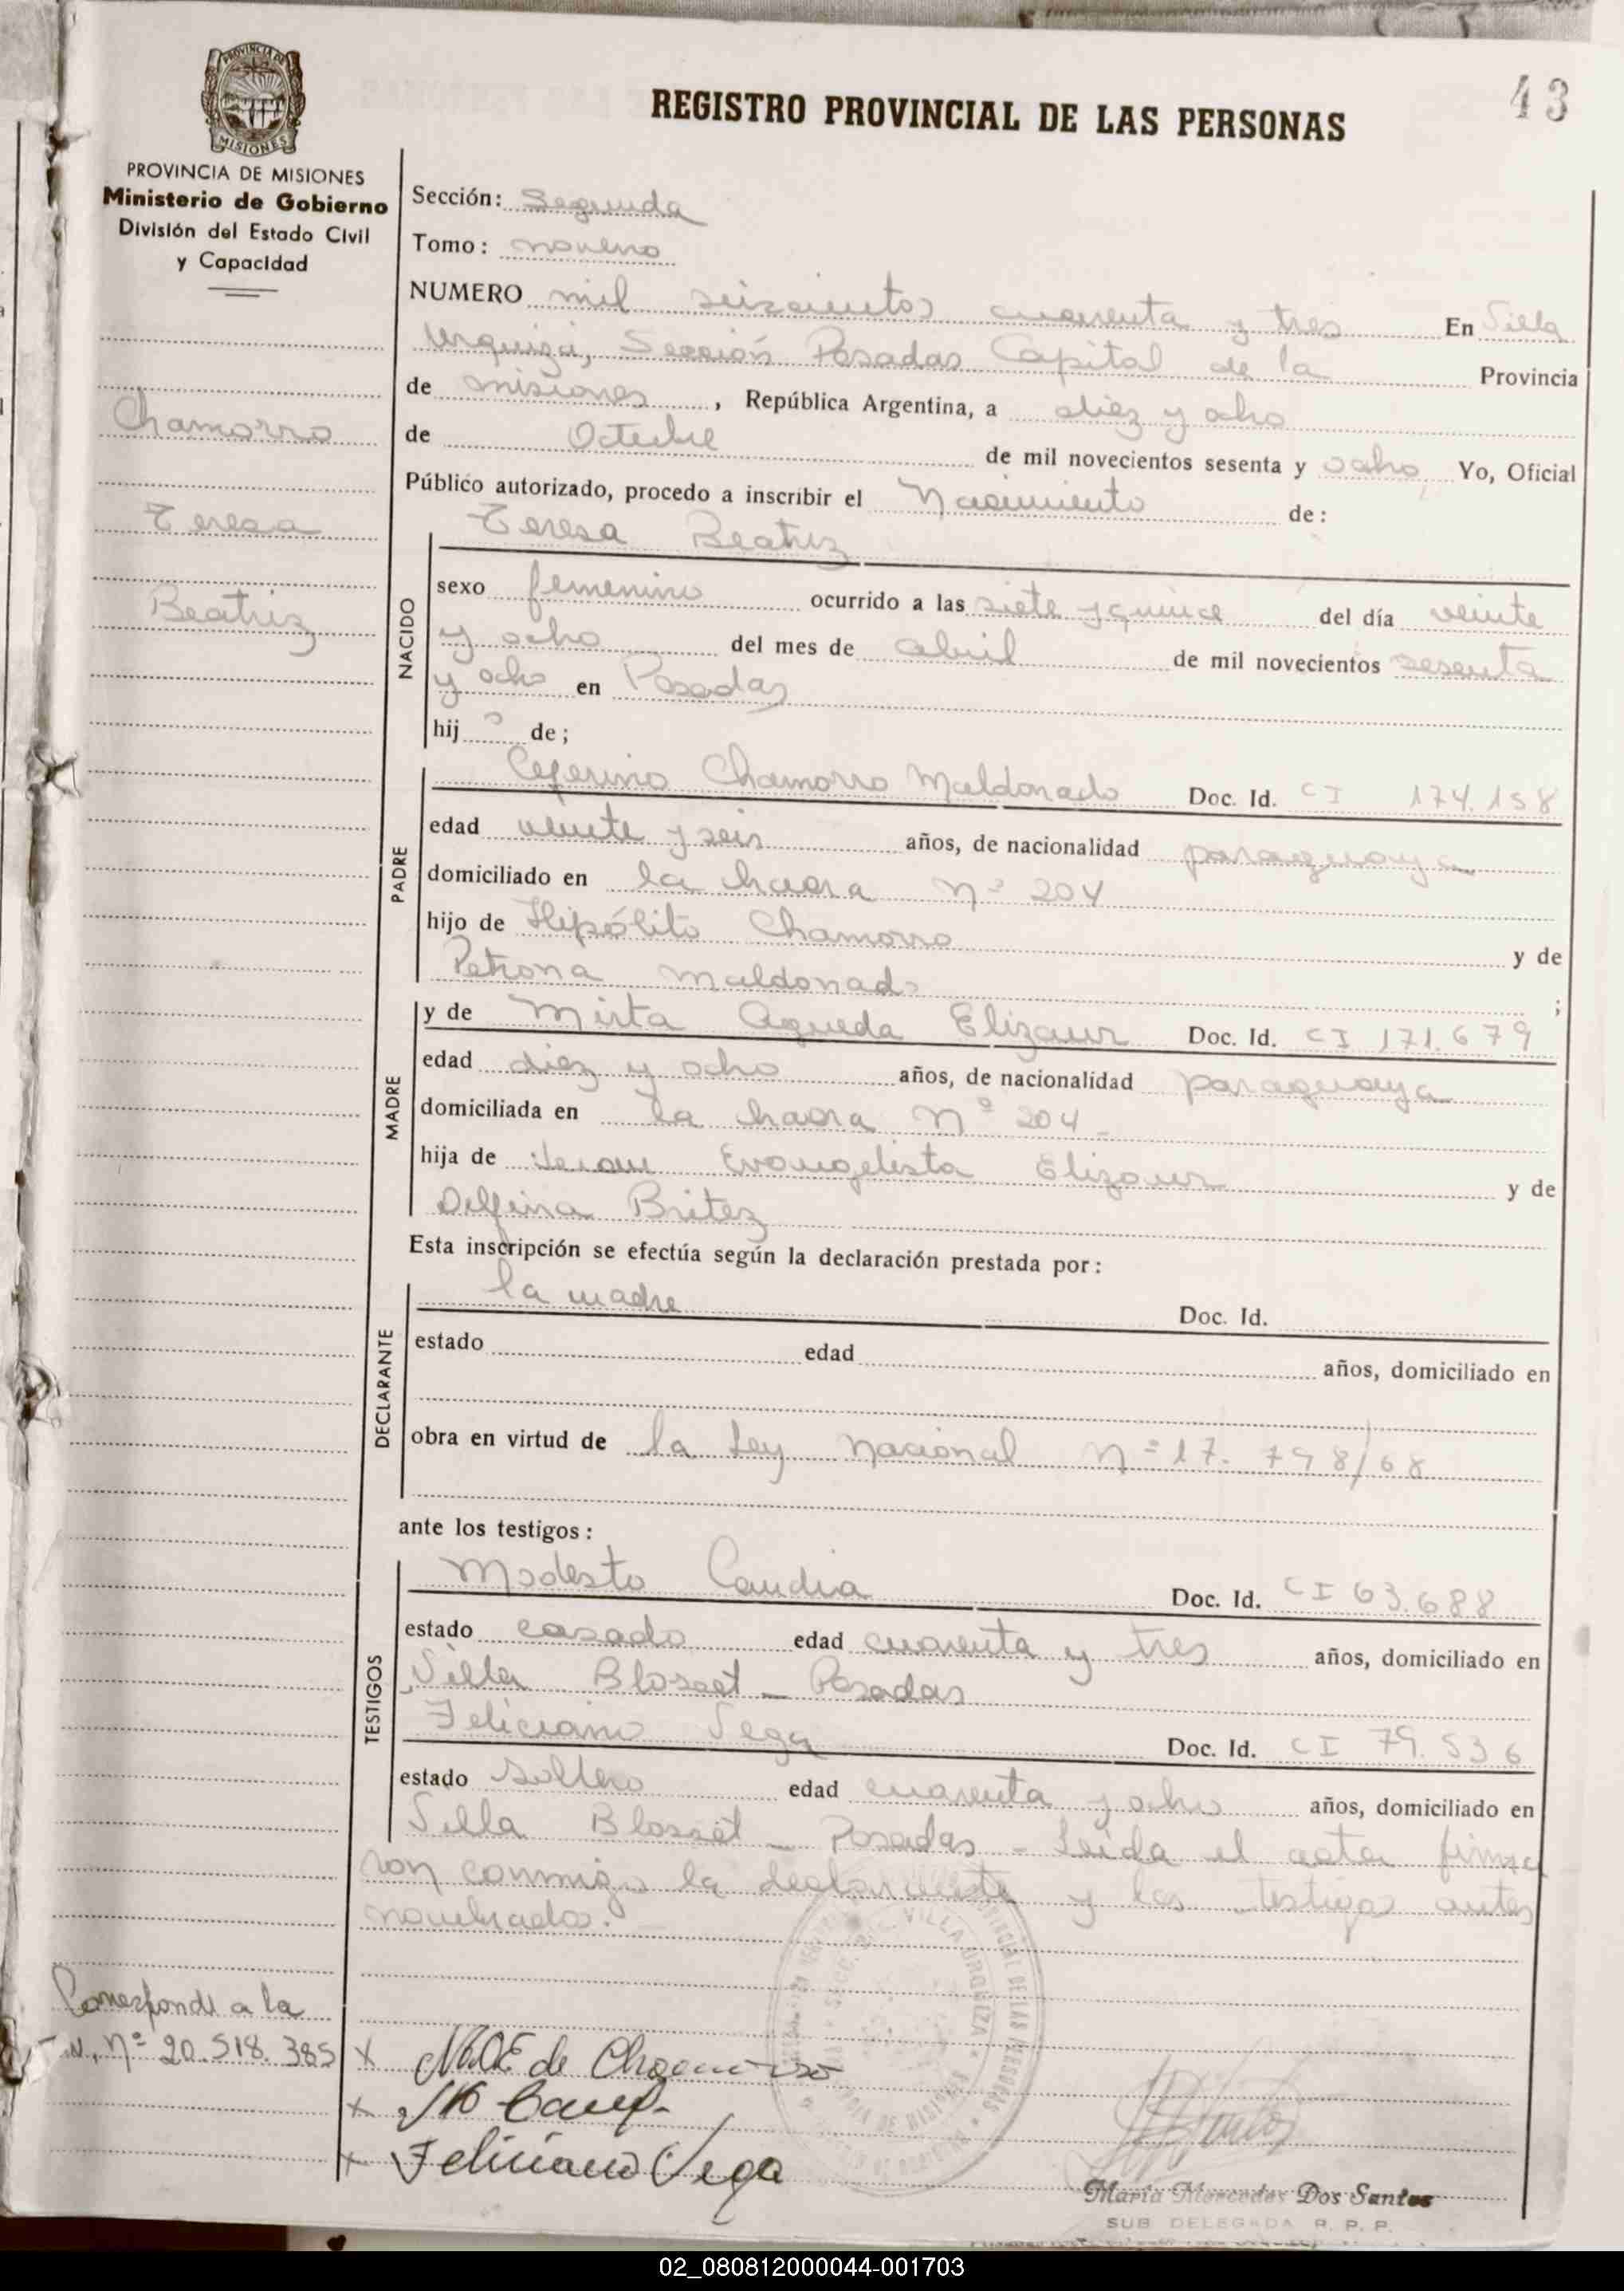 43
REGISTRO PROVINCIAL DE LAS PERSONAS
PROVINCIA DE MISIONES
Ministerio de Gobierno
División del Estado Civil
y Capacidad
Chamorro
Teresa
Beatriz
Sección: Segunda
Tomo: noveno
NUMERO mil seiscientos cuarenta y tres En Villa
Urquiza, Sección Posadas Capital de la Provincia
de misiones, República Argentina, a diez y ocho
de Octubre de mil novecientos sesenta y ocho Yo, Oficial
Público autorizado, procedo a inscribir el Nacimiento de:
Teresa Beatriz
NACIDO
sexo femenino ocurrido a las siete y quince del día veinte
y ocho del mes de abril de mil novecientos sesenta
y ocho en Posadas
hij de;
PADRE
Ceferino Chamorro Maldonado Doc. Id. CI 174.158
edad veinte y seis años, de nacionalidad paraguaya
domiciliado en la hacra nº 204
hijo de Hipólito Chamorro y de
Petrona Maldonado ;
MADRE
y de Mirta Agueda Elizaur Doc. Id. CI 171.679
edad diez y ocho años, de nacionalidad paraguaya
domiciliada en la hacra nº 204
hija de Evangelista Elizaur y de
Delfina Britez
Esta inscripción se efectúa según la declaración prestada por:
DECLARANTE
la madre Doc. Id.
estado edad años, domiciliado en
obra en virtud de la Ley Nacional nº 17.798/68
ante los testigos:
TESTIGOS
Modesto Candia Doc. Id. CI 63.688
estado casado edad cuarenta y tres años, domiciliado en
Villa Blosset - Posadas
Feliciano Vega Doc. Id. CI 79.536
estado soltero edad cuarenta y ocho años, domiciliado en
Villa Blosset - Posadas - Leída el acta firma
ron conmigo la declarante y los testigos antes
nombrados.
Corresponde a la
N. Nº 20.518.385
x de Chamorro
x
x Feliciano Vega
VILLA URQUIZA
María Mercedes Dos Santos
SUB DELEGADA R. P. P.
02_080812000044-001703